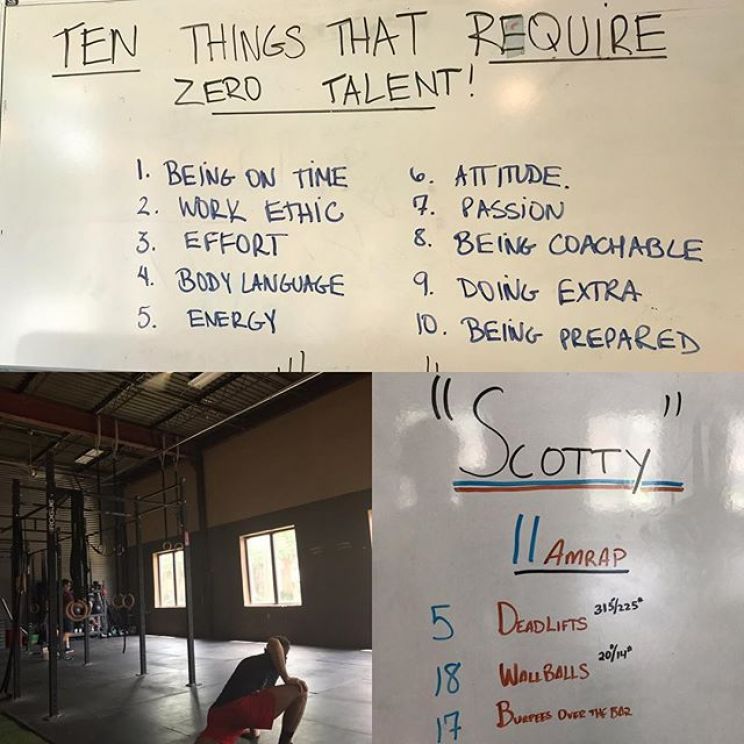 TEN THINGS THAT REQUIRE
ZERO TALENT!
1. BEING ON TIME
2. WORK ETHIC
3. EFFORT
4. BODY LANGUAGE
5. ENERGY
6. ATTITUDE.
7. PASSION
8. BEING COACHABLE
9. DOING EXTRA
10. BEING PREPARED
ROGUE
"SCOTTY"
11 AMRAP
5 DEADLIFTS 315/225#
18 WALLBALLS 20/14#
17 BURPEES OVER THE BAR